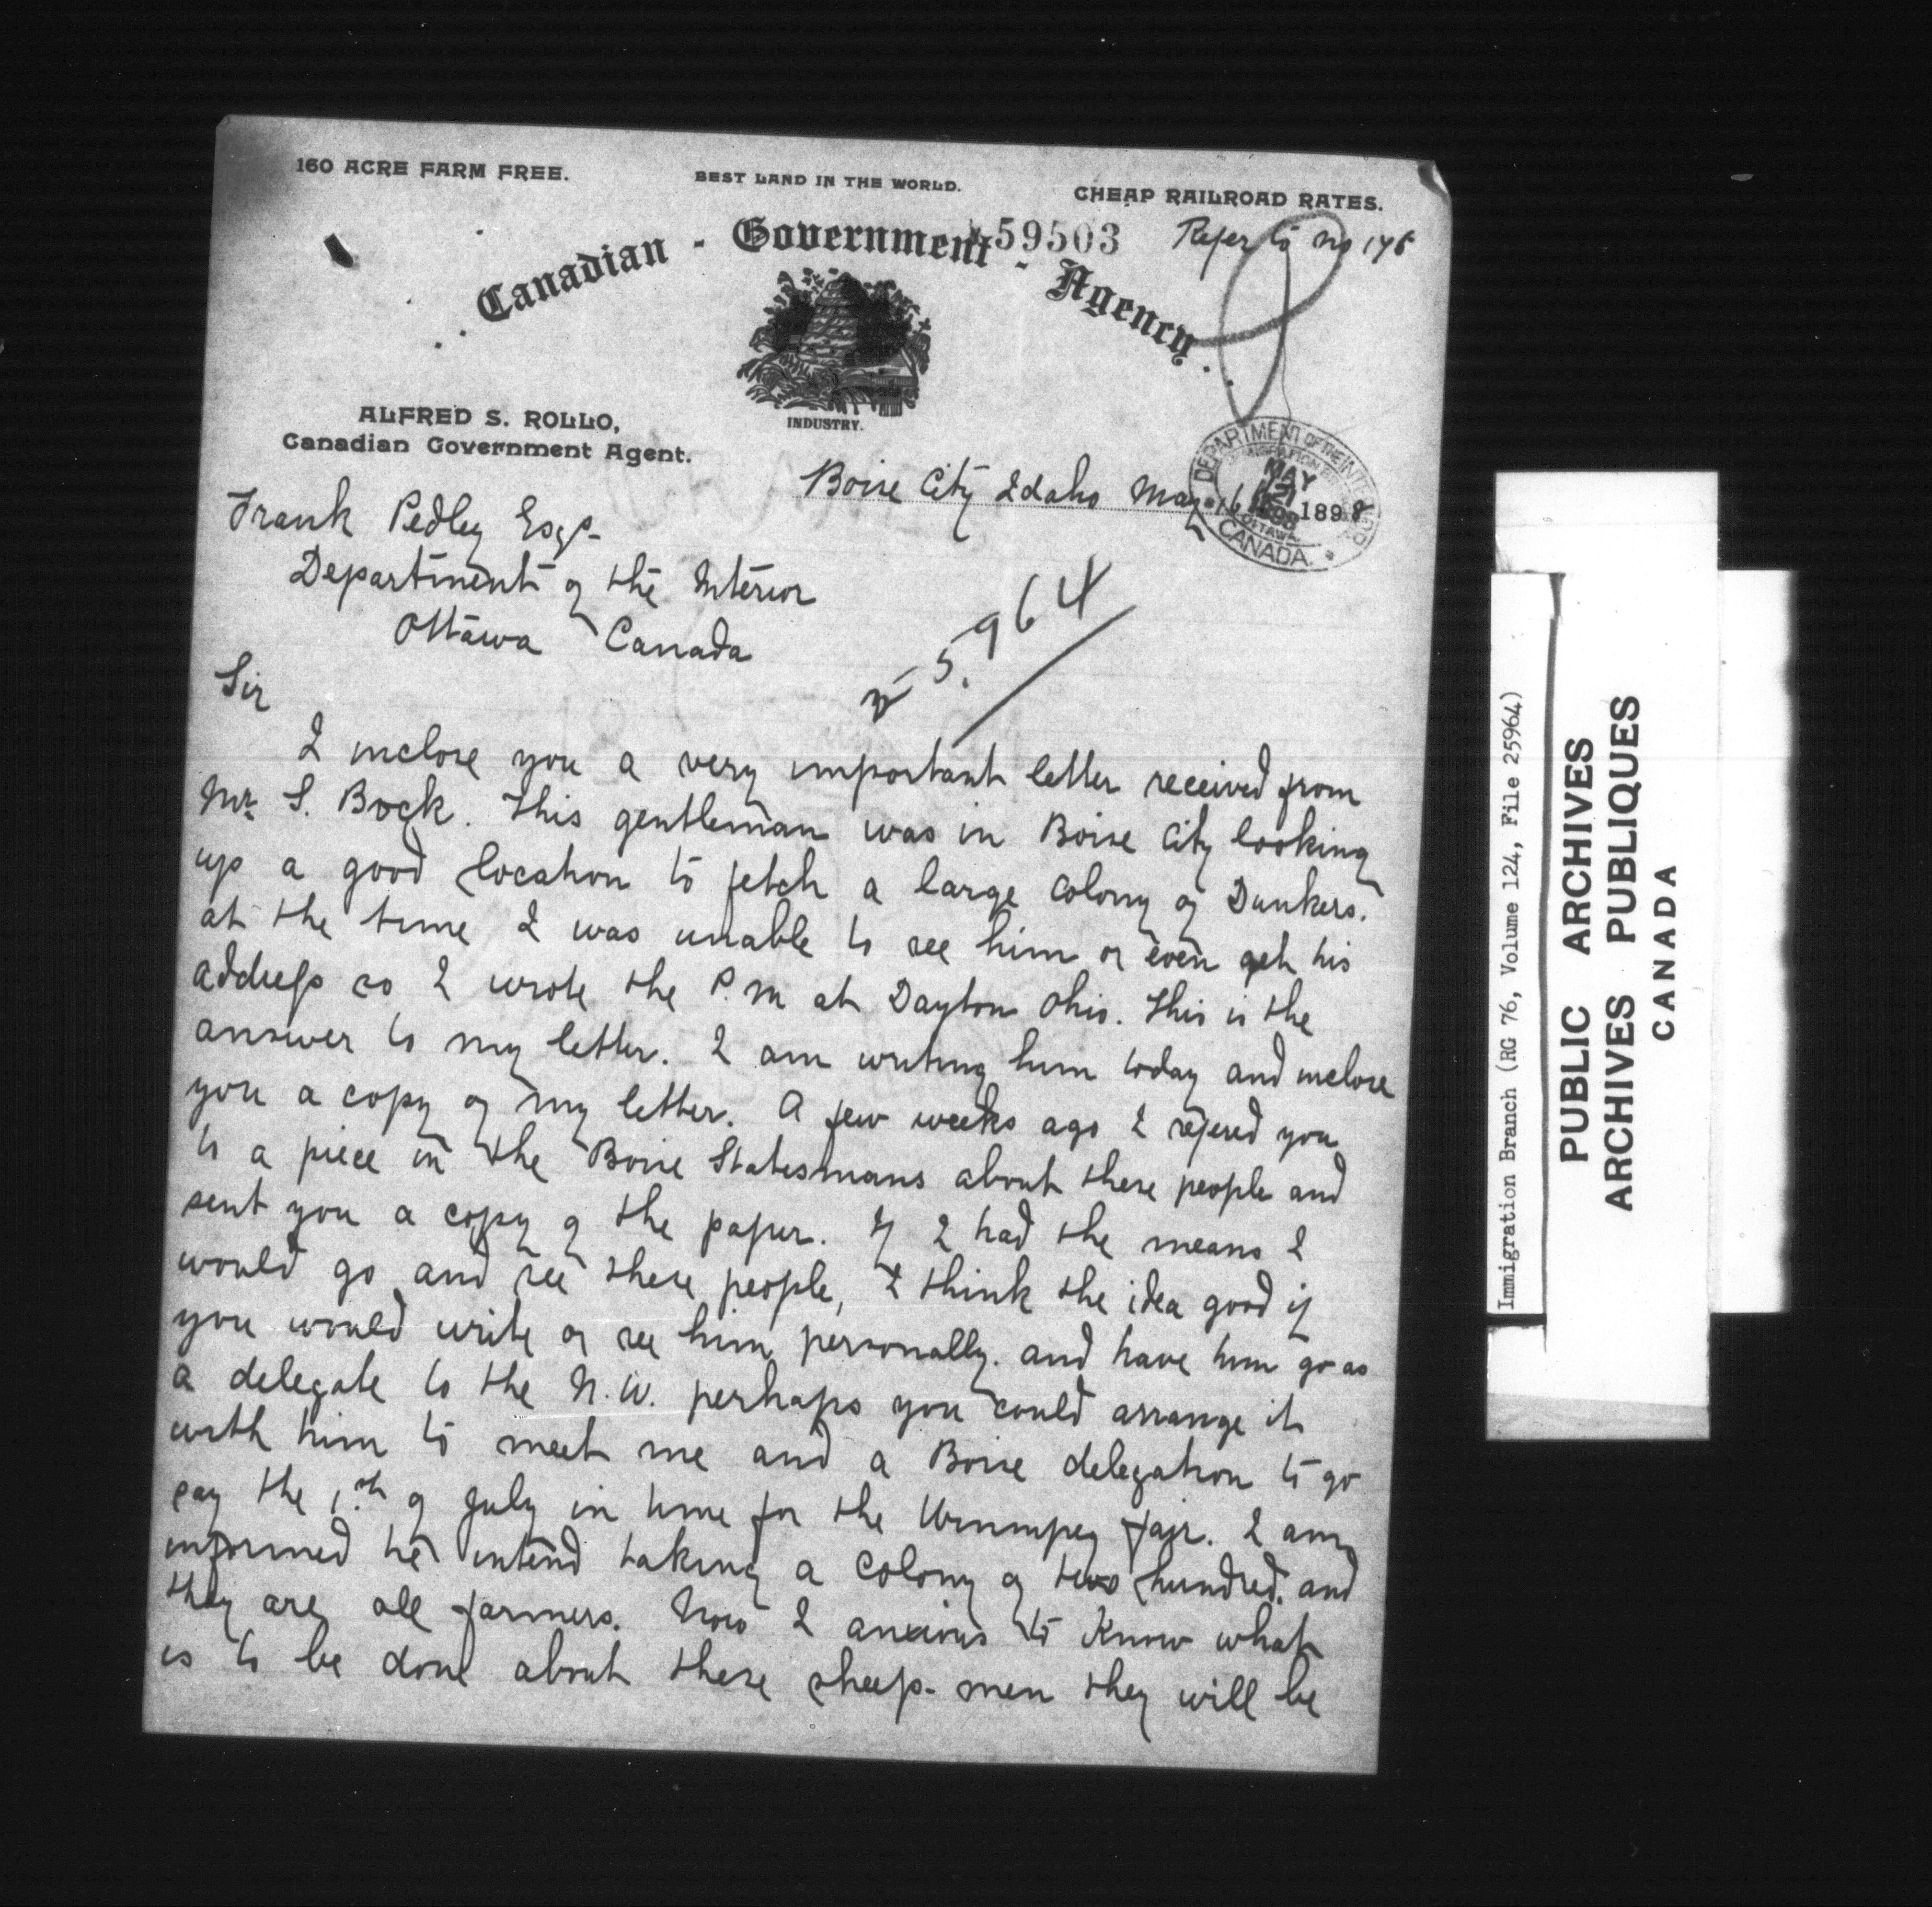 160 ACRE FARM FREE.
BEST LAND IN THE WORLD.
CHEAP RAILROAD RATES.
59503
Refer to no 178
Canadian - Government - Agency
INDUSTRY.
ALFRED S. ROLLO,
Canadian Government Agent.
Boise City Idaho May 16 1898
DEPARTMENT OF THE INTERIOR
MAY
21
1898
OTTAWA.
CANADA.
Frank Pedley Esqr
Department of the Interior
Ottawa Canada
25964
Sir
I inclose you a very important letter received from
Mr. S. Bock. This gentleman was in Boise City looking
up a good location to fetch a large colony of Dunkers.
at the time I was unable to see him or even get his
address so I wrote the P.M at Dayton Ohio. This is the
answer to my letter. I am writing him today and inclose
you a copy of my letter. A few weeks ago I refered you
to a piece in the Boise Statesmans about these people and
sent you a copy of the paper. If I had the means I
would go and see these people, I think the idea good if
you would write or see him personally. and have him go as
a delegate to the N.W. perhaps you could arrange it
with him to meet me and a Boise delegation to go
say the 1.th of July in time for the Winnipeg fair. I am
informed he intend taking a colony of two hundred. and
they are all farmers. Now I anxious to know what
is to be done about these sheep-men they will be
Immigration Branch (RG 76, Volume 124, File 25964)
PUBLIC ARCHIVES
ARCHIVES PUBLIQUES
CANADA